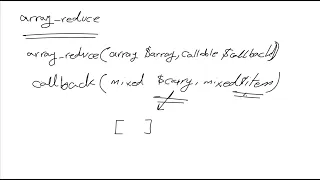 array_reduce
array_reduce(array $array, callable $callback)
callback(mixed $carry, mixed $item)
[ ]